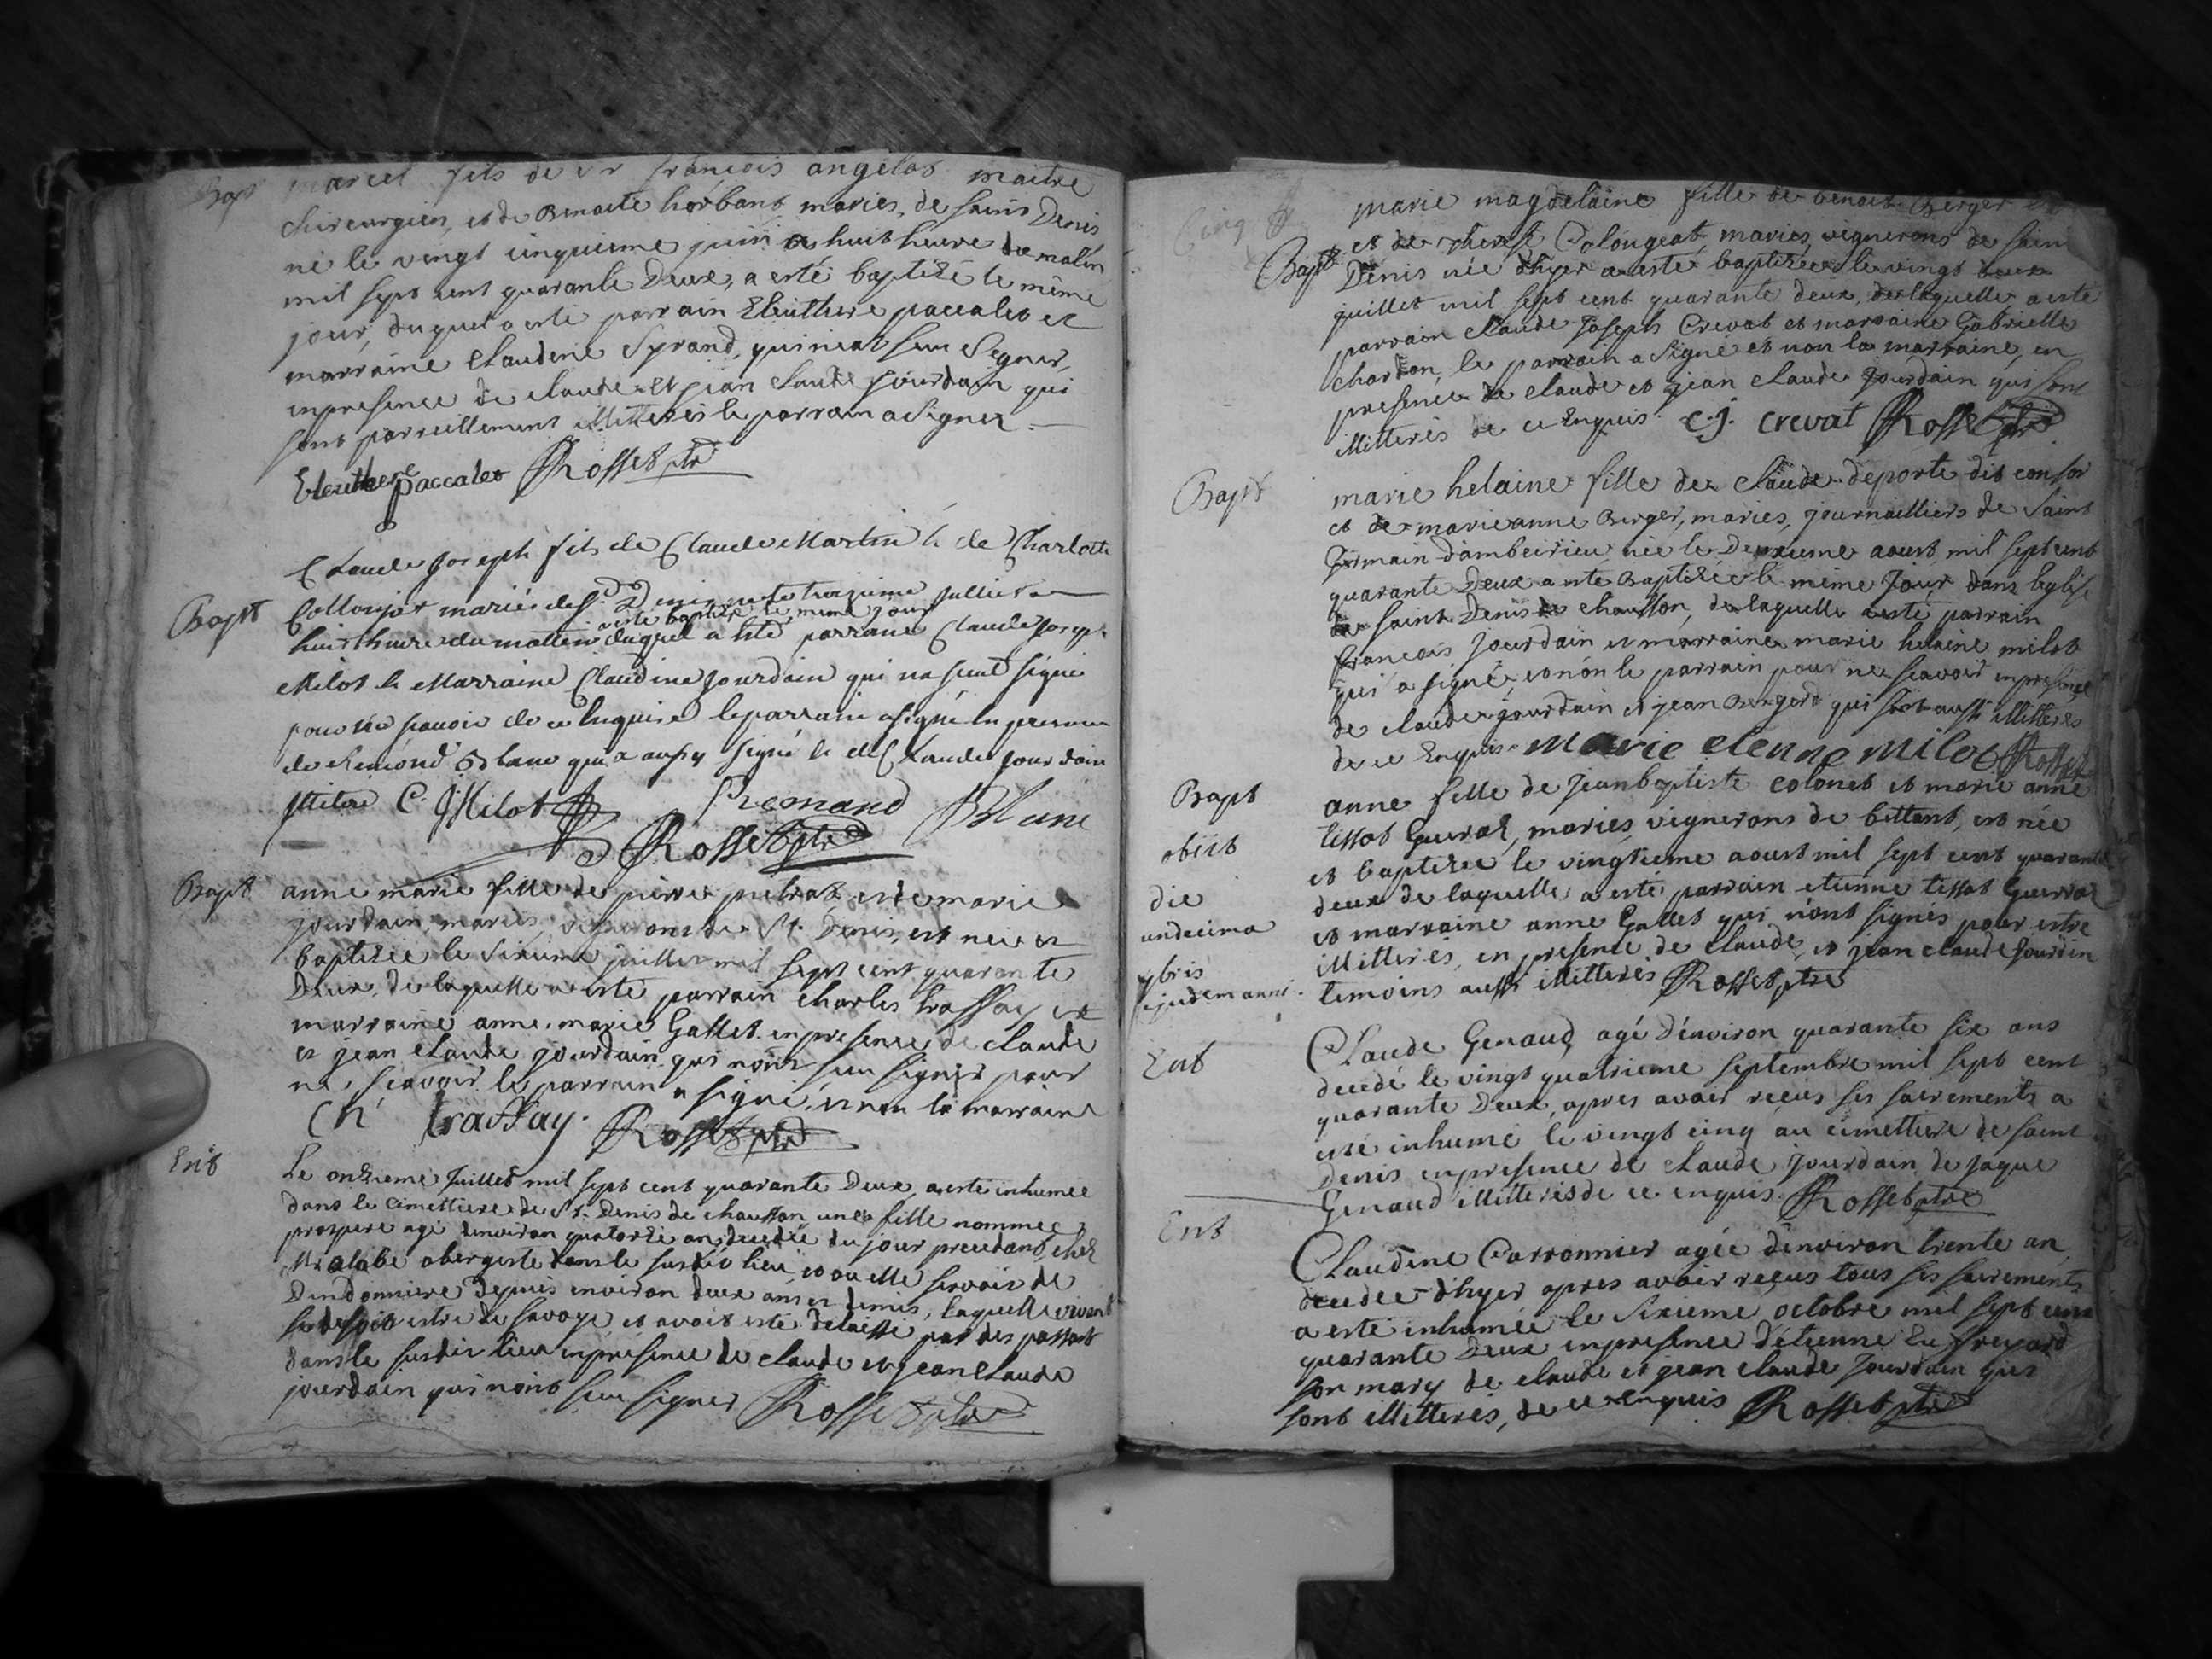 Bapt marcel fils de sr françois angelot maitre
chireurgien, et de Benoite horbant maries, de saint Denis
né le vingt cinquieme juin a huit heure du matin
mil sept cent quarante Deux, a esté baptisé le même
jour, duquel a esté parrain Eleuthere paccalet et
marraine Claudine Syrand, qui n'eat seu Signer,
en presence de claude et jean claude jourdain qui
sont parreillement illitteres le parrain a Signer
Eleuthere paccalet Rosset ptre
Claude Joseph fils de Claude Martin & de Charlotte
Bapt Collonjat mariés de St. Denis né le troizieme Jullier a
a esté baptisé le meme jour
huit heure du mattin duquel a esté parrain Claude Joseph
Milot & Marraine Claudine Jourdain qui na seut signé
pour ne scavoir de ce enquise le parrain a signé en presence
de Remond Blanc qui a aussy signé & de Claude Jourdain
illitere C. J Milot Remond Blanc
Rosset ptre
Bapt anne marie fille de pierre pietrat et de marie
jourdain, mariés, vignerons de St. Denis, est neé et
baptisée le Sixieme juillet mil sept cent quarante
Deux, de laquelle a esté parrain charles traffay et
marraine anne marie Gallet en presence de claude
et jean claude jourdain qui n'ont seu signer pour
ne scavoir le parrain a signé, et non la marraine
Ch traffay. Rosset ptre
Ent Le onzieme Juillet mil sept cent quarante Deux, a esté inhumée
dans le Cimettiere de St. Denis de chausson, une fille nommée
prospere agé d'environ quatorze ans, decedée du jour precedant, chez
Mr alabe obergiste dans le susdit lieu, et ou elle servoit de
Dindonniere Depuis environ deux ans et demis, laquelle vivant
se disoit estre de savoye et avoit esté delaissé par des passant
dans le susdit lieu en présence de claude et jean claude
jourdain qui n'ont seu signer Rosset ptre
marie magdelaine fille de benoit Berger et
et de therese Colongeat, mariés, vignerons de saint
Bapt Denis née d'hyer a esté baptisée le vingt deux
juillet mil sept cent quarante deux, de laquelle a esté
parrain claude Joseph Crevat et marraine Gabrielle
chardon, le parrain a Signé et non la marraine, en
presence de claude et jean claude Jourdain qui sont
illitterés de ce Enquis. C. j. crevat Rosset ptre
Bapt marie helaine fille de Claude deporte dit confor
et de marieanne Berger, maries, journailliers de Saint
Germain d'ambeirieu née le Deuxieme aoust mil sept cent
quarante Deux a esté Baptisée le même Jour dans leglise
de saint Denis de chausson, de laquelle a esté parrain
françois jourdain et marraine marie helaine milot
qui a signé, et non le parrain pour ne scavoir en presence
de claude jourdain et jean Bergerd qui sont aussi illitterés
de ce Enquis. Marie elenne milot Rosset
Bapt anne fille de jeanbaptiste colonet et marie anne
tissot Guerraz, mariés, vignerons de bettant, est née
obiit et baptisée le vingtieme aoust mil sept cent quarante
die deux de laquelle a esté parrain etienne tissot Guerraz
undecima et marraine anne Gallet qui n'ont signés pour estre
illitterés, en presence de claude, et jean claude Jourdin
9bris
ejusdem anni. temoins aussi illitteres Rosset ptre
Ent Claude Genaud, agé d'environ quarante six ans
decedé le vingt quatrieme septembre mil sept cent
quarante Deux, apres avoir reçus ses sacrements a
esté inhumé le vingt cinq au cimettiere de saint
Denis en presence de claude Jourdain, de jaque
Genaud illitterés de ce enquis. Rosset ptre
Ent Claudine Carronnier agée d'environ trente an
decedée d'hyer apres avoir reçus tous ses sacrements
a esté inhumée le Sixieme octobre mil sept cent
quarante Deux en presence d'etienne
son mary de claude et jean claude Jourdain qui
sont illitteres, de ce enquis Rosset ptre